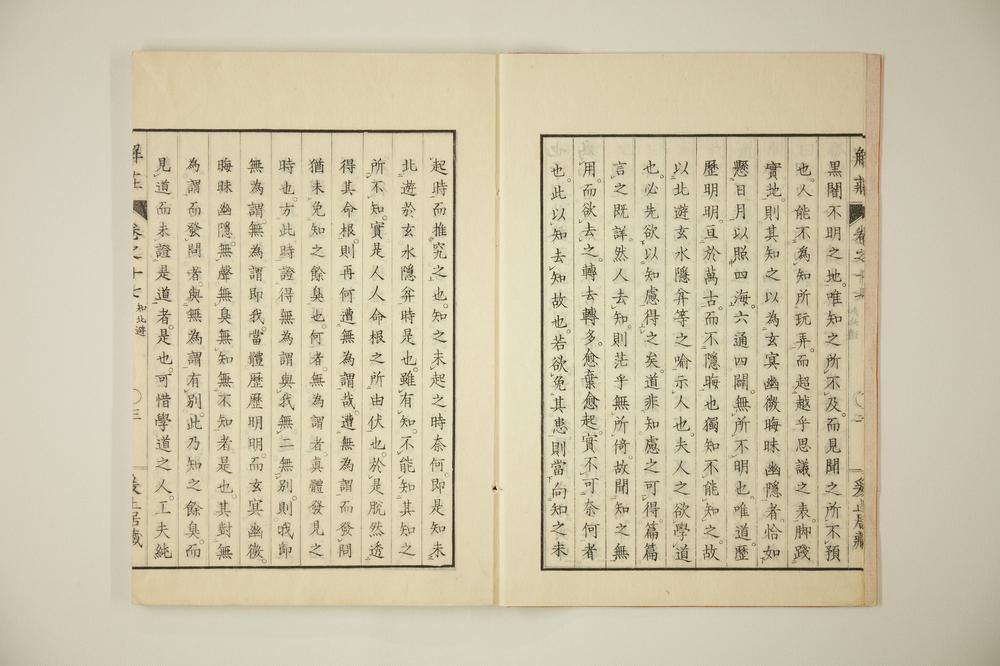 黒闇不明之地。唯知之所不及。而見聞之所不預
也。人能不為知所玩弄。而超越乎思議之表。脚踐
實地。則其知之以為玄冥幽微晦昧幽隱者。恰如
懸日月以照四海。六通四闢。無所不明也。唯道歷
歷明明。亘於萬古。而不隱晦也。獨知不能知之。故
以北遊玄水隱弅等之喻示人也。夫人之欲學道
也。必先欲以知慮得之矣。道非知慮之可得。篇篇
言之既詳。然人去知。則茫乎無所倚。故聞知之無
用。而欲去之。轉去轉多。愈棄愈起。實不可奈何者
也。此以知去知故也。若欲免其患。則當向知之未
起時而推究之也。知之未起之時奈何。即是知未
北遊於玄水隱弅時是也。雖有知。不能知其知之
所不知。實是人人命根之所由伏也。於是脱然透
得其命根。則再何遭無為謂哉。遭無為謂而發問
猶未免知之餘臭也。何者。無為謂者。真體發見之
時也。方此時證得無為謂與我無二無別。則我即
無為謂。無為謂即我。當體歷歷明明。而玄冥幽微。
晦昧幽隱。無聲無臭無知無不知者是也。其對無
為謂而發問者。與無為謂有別。此乃知之餘臭。而
見道而未證是道者是也。可惜學道之人。工夫純
解莊 卷之十七 知北遊 三